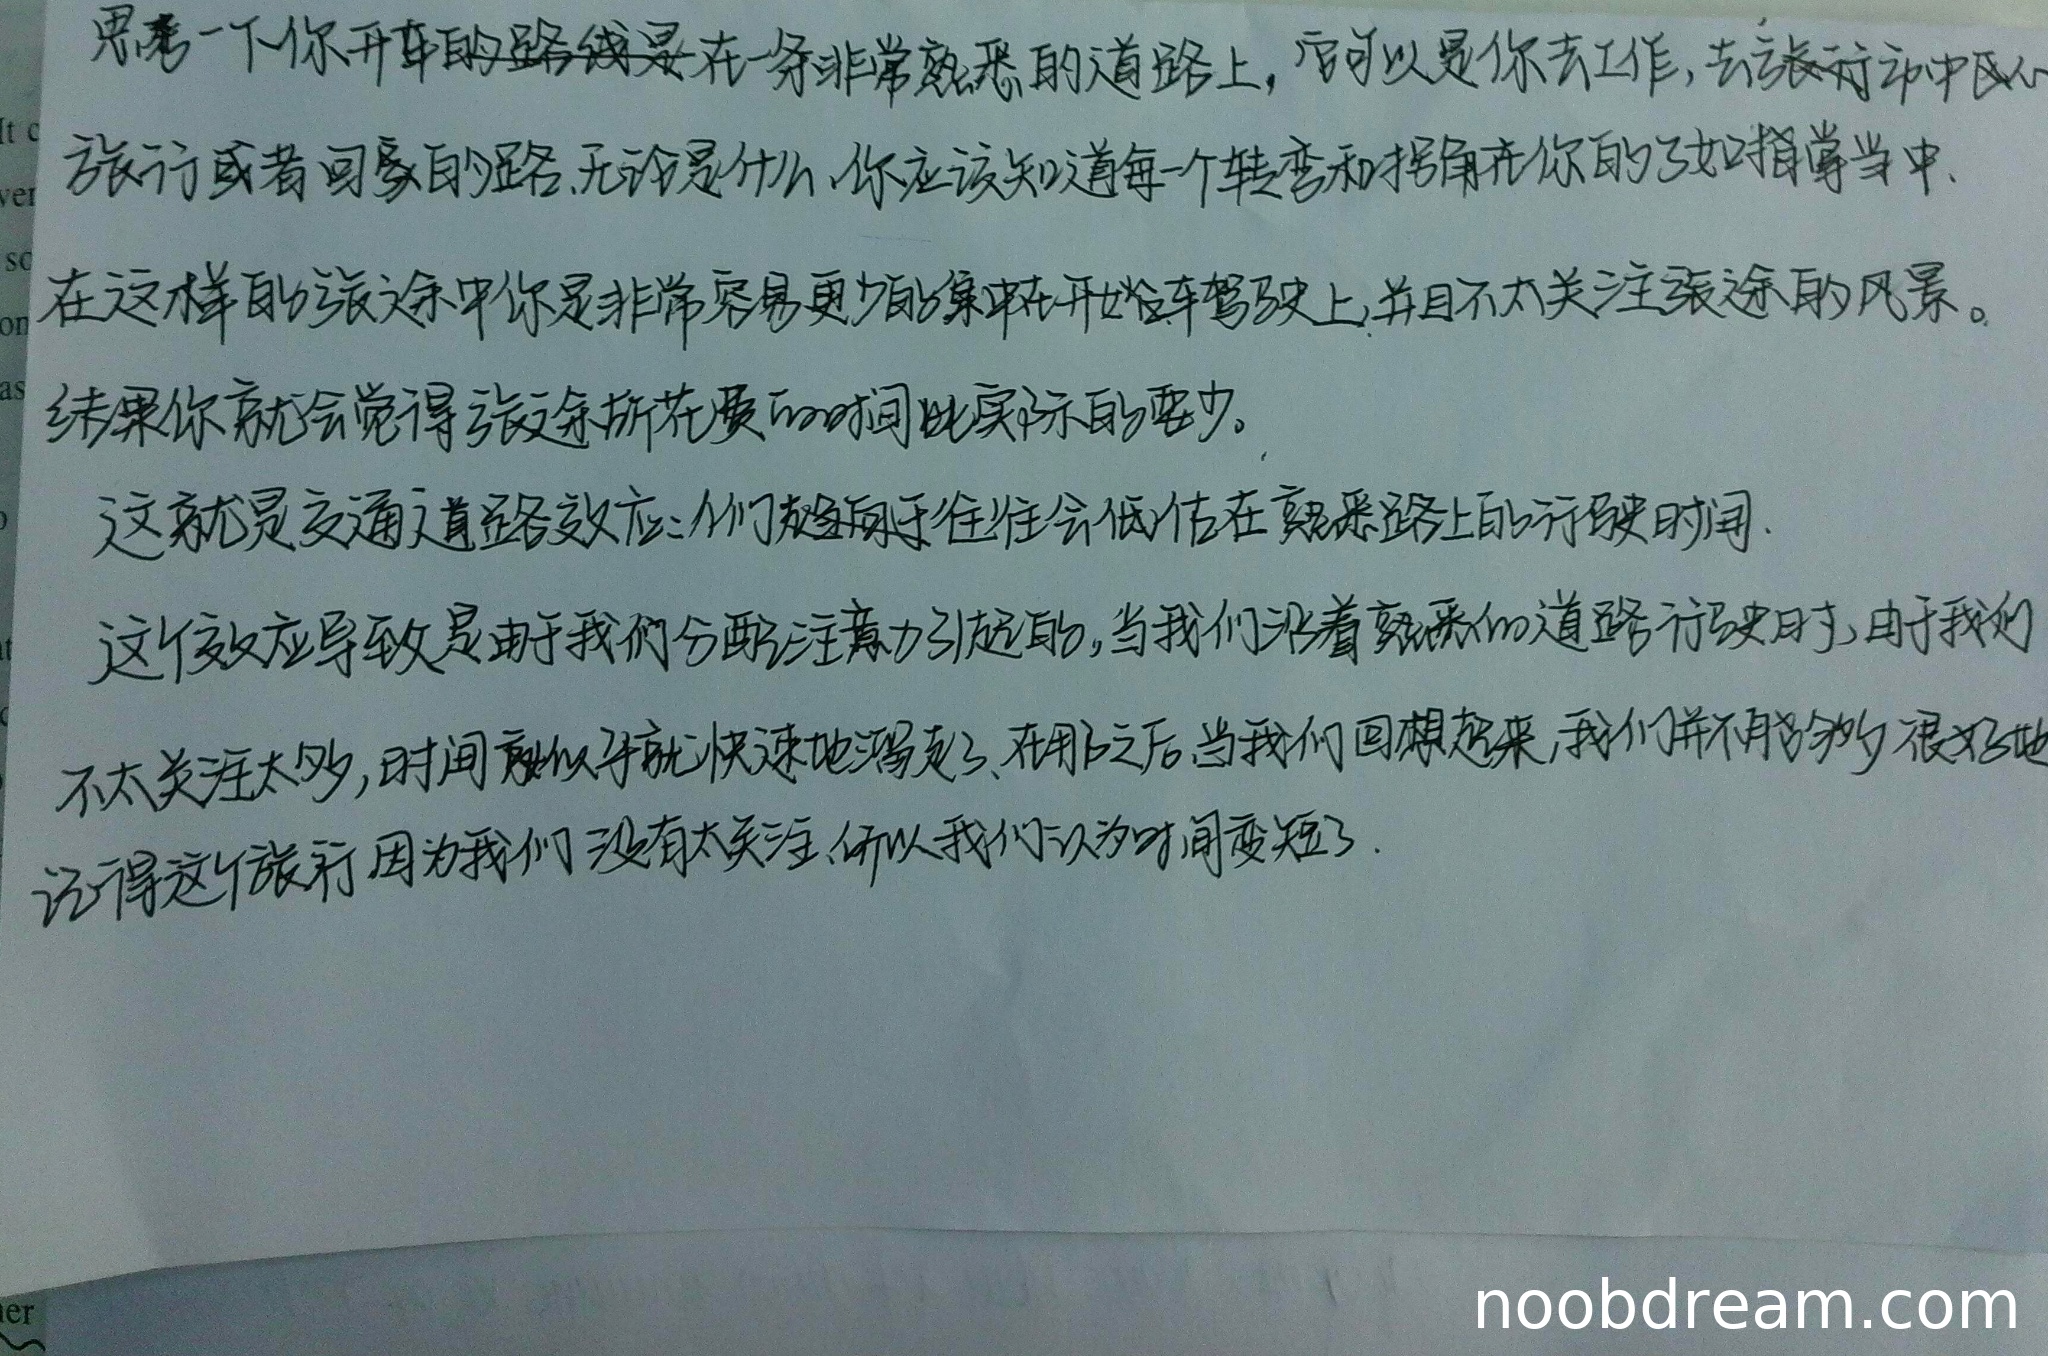 思考一下你开车的路线是在一条非常熟悉的道路上，它可以是你去工作，去旅行市中心
旅行或者回家的路、无论是什么、你应该知道每一个转弯和拐角在你的了如指掌当中、
在这样的旅途中你是非常容易更少的集中在开始车驾驶上，并且不太关注旅途的风景。
结果你就会觉得旅途所花费的时间比实际的要少。
这就是交通道路效应：人们趋向于往往会低估在熟悉路上的行驶时间.
这个效应导致是由于我们分配注意力引起的。当我们沿着熟悉的道路行驶时，由于我们
不太关注太多，时间貌似乎就快速地溜走了、在那之后、当我们回想起来，我们并不能够很好地
记得这个旅行因为我们没有太关注、所以我们认为时间变短了.
It c
ver
so
on
as
ner
noobdream.com